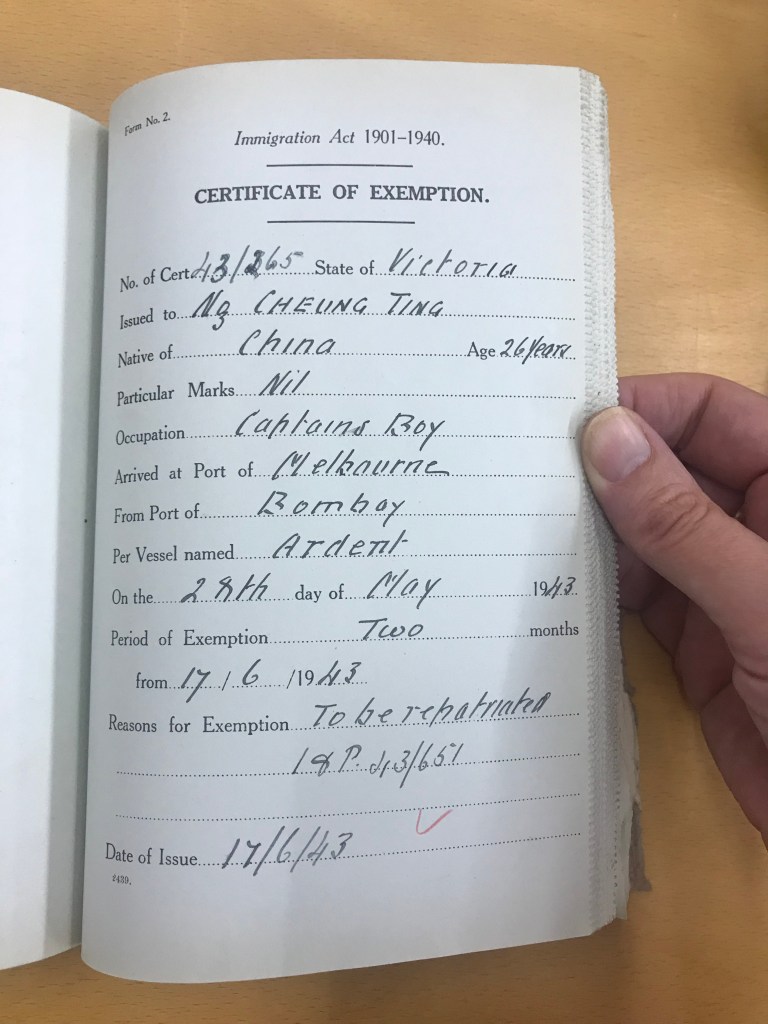 Form No. 2.
Immigration Act 1901-1940.
CERTIFICATE OF EXEMPTION.
No. of Cert. 43/365 State of Victoria
Issued to Ng CHEUNG TING
Native of China Age 26 Years
Particular Marks Nil
Occupation Captains Boy
Arrived at Port of Melbourne
From Port of Bombay
Per Vessel named Ardent
On the 28th day of May 1943
Period of Exemption Two months
from 17/6/1943
Reasons for Exemption To be repatriated
I & P. 43/651
Date of Issue 17/6/43
2439.